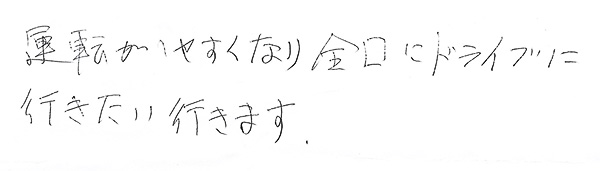 運転がしやすくなり全口にドライブに
行きたい行きます.